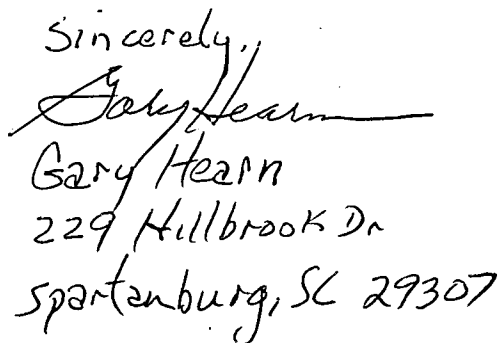 Sincerely,
Gary Hearn
Gary Hearn
229 Hillbrook Dr
Spartanburg, SC 29307